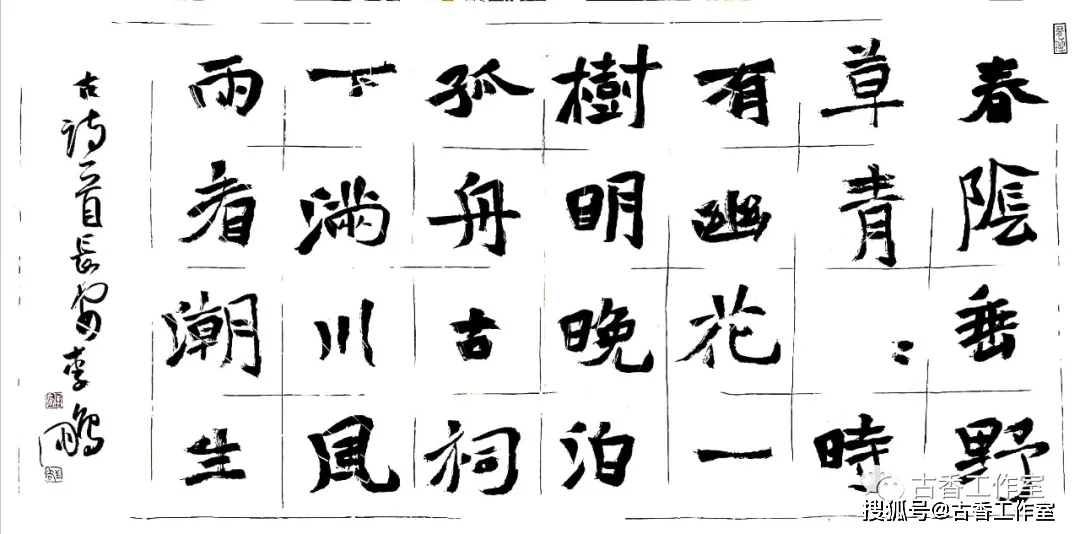 春陰垂野
草青〻時
有幽花一
樹明晚泊
孤舟古祠
下滿川風
雨看潮生
古詩一首長安李鵬
古香工作室
搜狐号@古香工作室